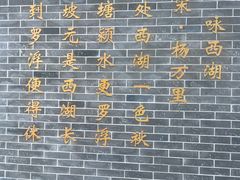 咏西湖
宋·杨万里
处西湖一色秋
塘颍水更罗浮
坡元是西湖长
到罗浮便得休